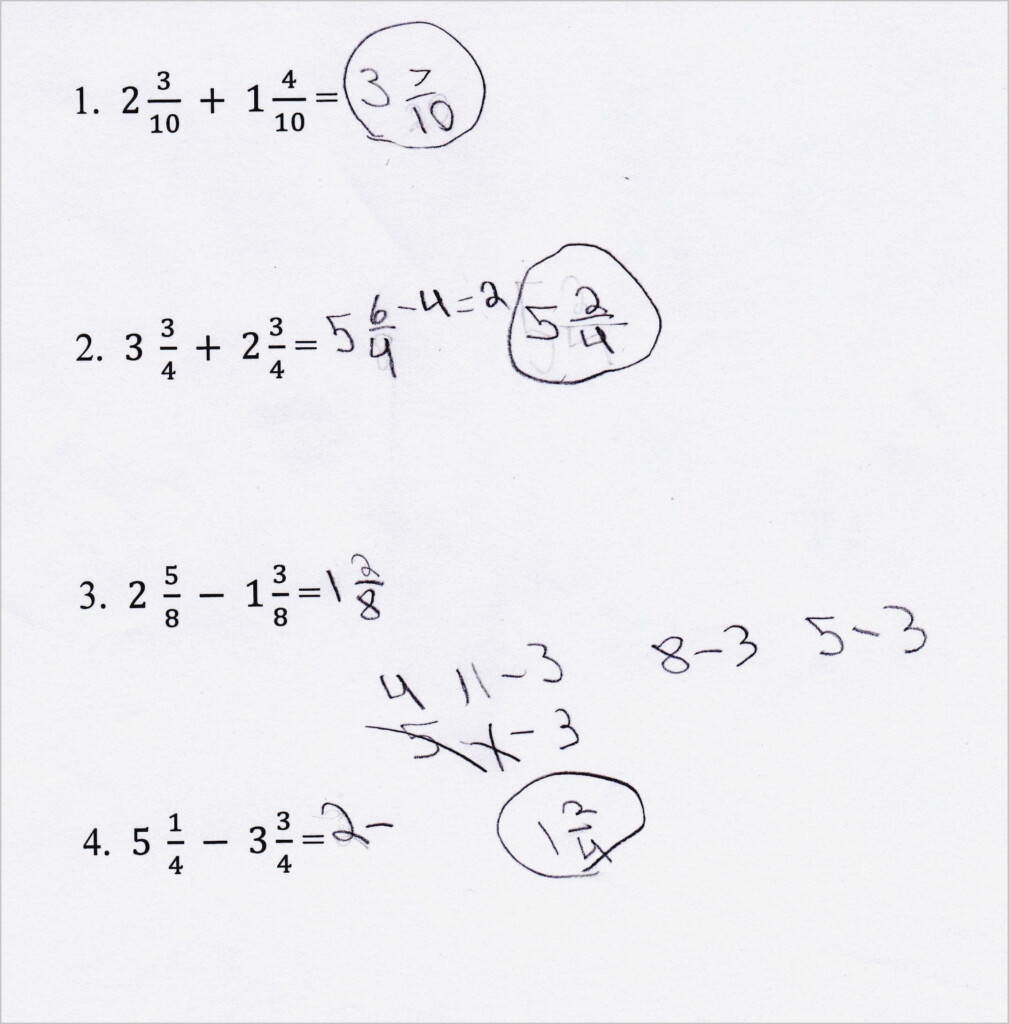 1. 2 3/10 + 1 4/10 = 3 7/10
2. 3 3/4 + 2 3/4 = 5 6/4 - 4 = 2 5 2/4
3. 2 5/8 − 1 3/8 = 1 2/8
8 - 3 5 - 3
4 11 - 3
5 1 - 3
4. 5 1/4 − 3 3/4 = 2 - 1 2/4